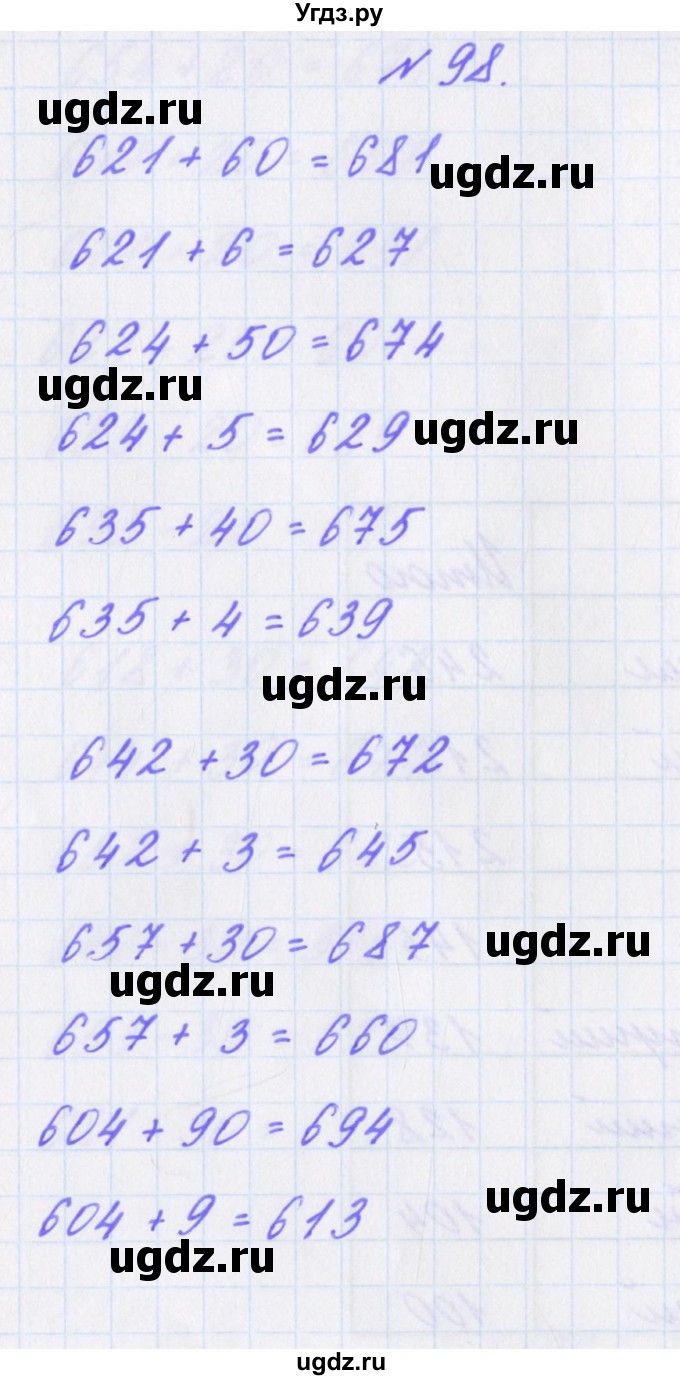 Угдз.ру
№ 98.
ugdz.ru
621 + 60 = 681
ugdz.ru
621 + 6 = 627
624 + 50 = 674
ugdz.ru
624 + 5 = 629
ugdz.ru
635 + 40 = 675
635 + 4 = 639
ugdz.ru
642 + 30 = 672
642 + 3 = 645
657 + 30 = 687
ugdz.ru
ugdz.ru
657 + 3 = 660
604 + 90 = 694
604 + 9 = 613
ugdz.ru
ugdz.ru
ugdz.ru